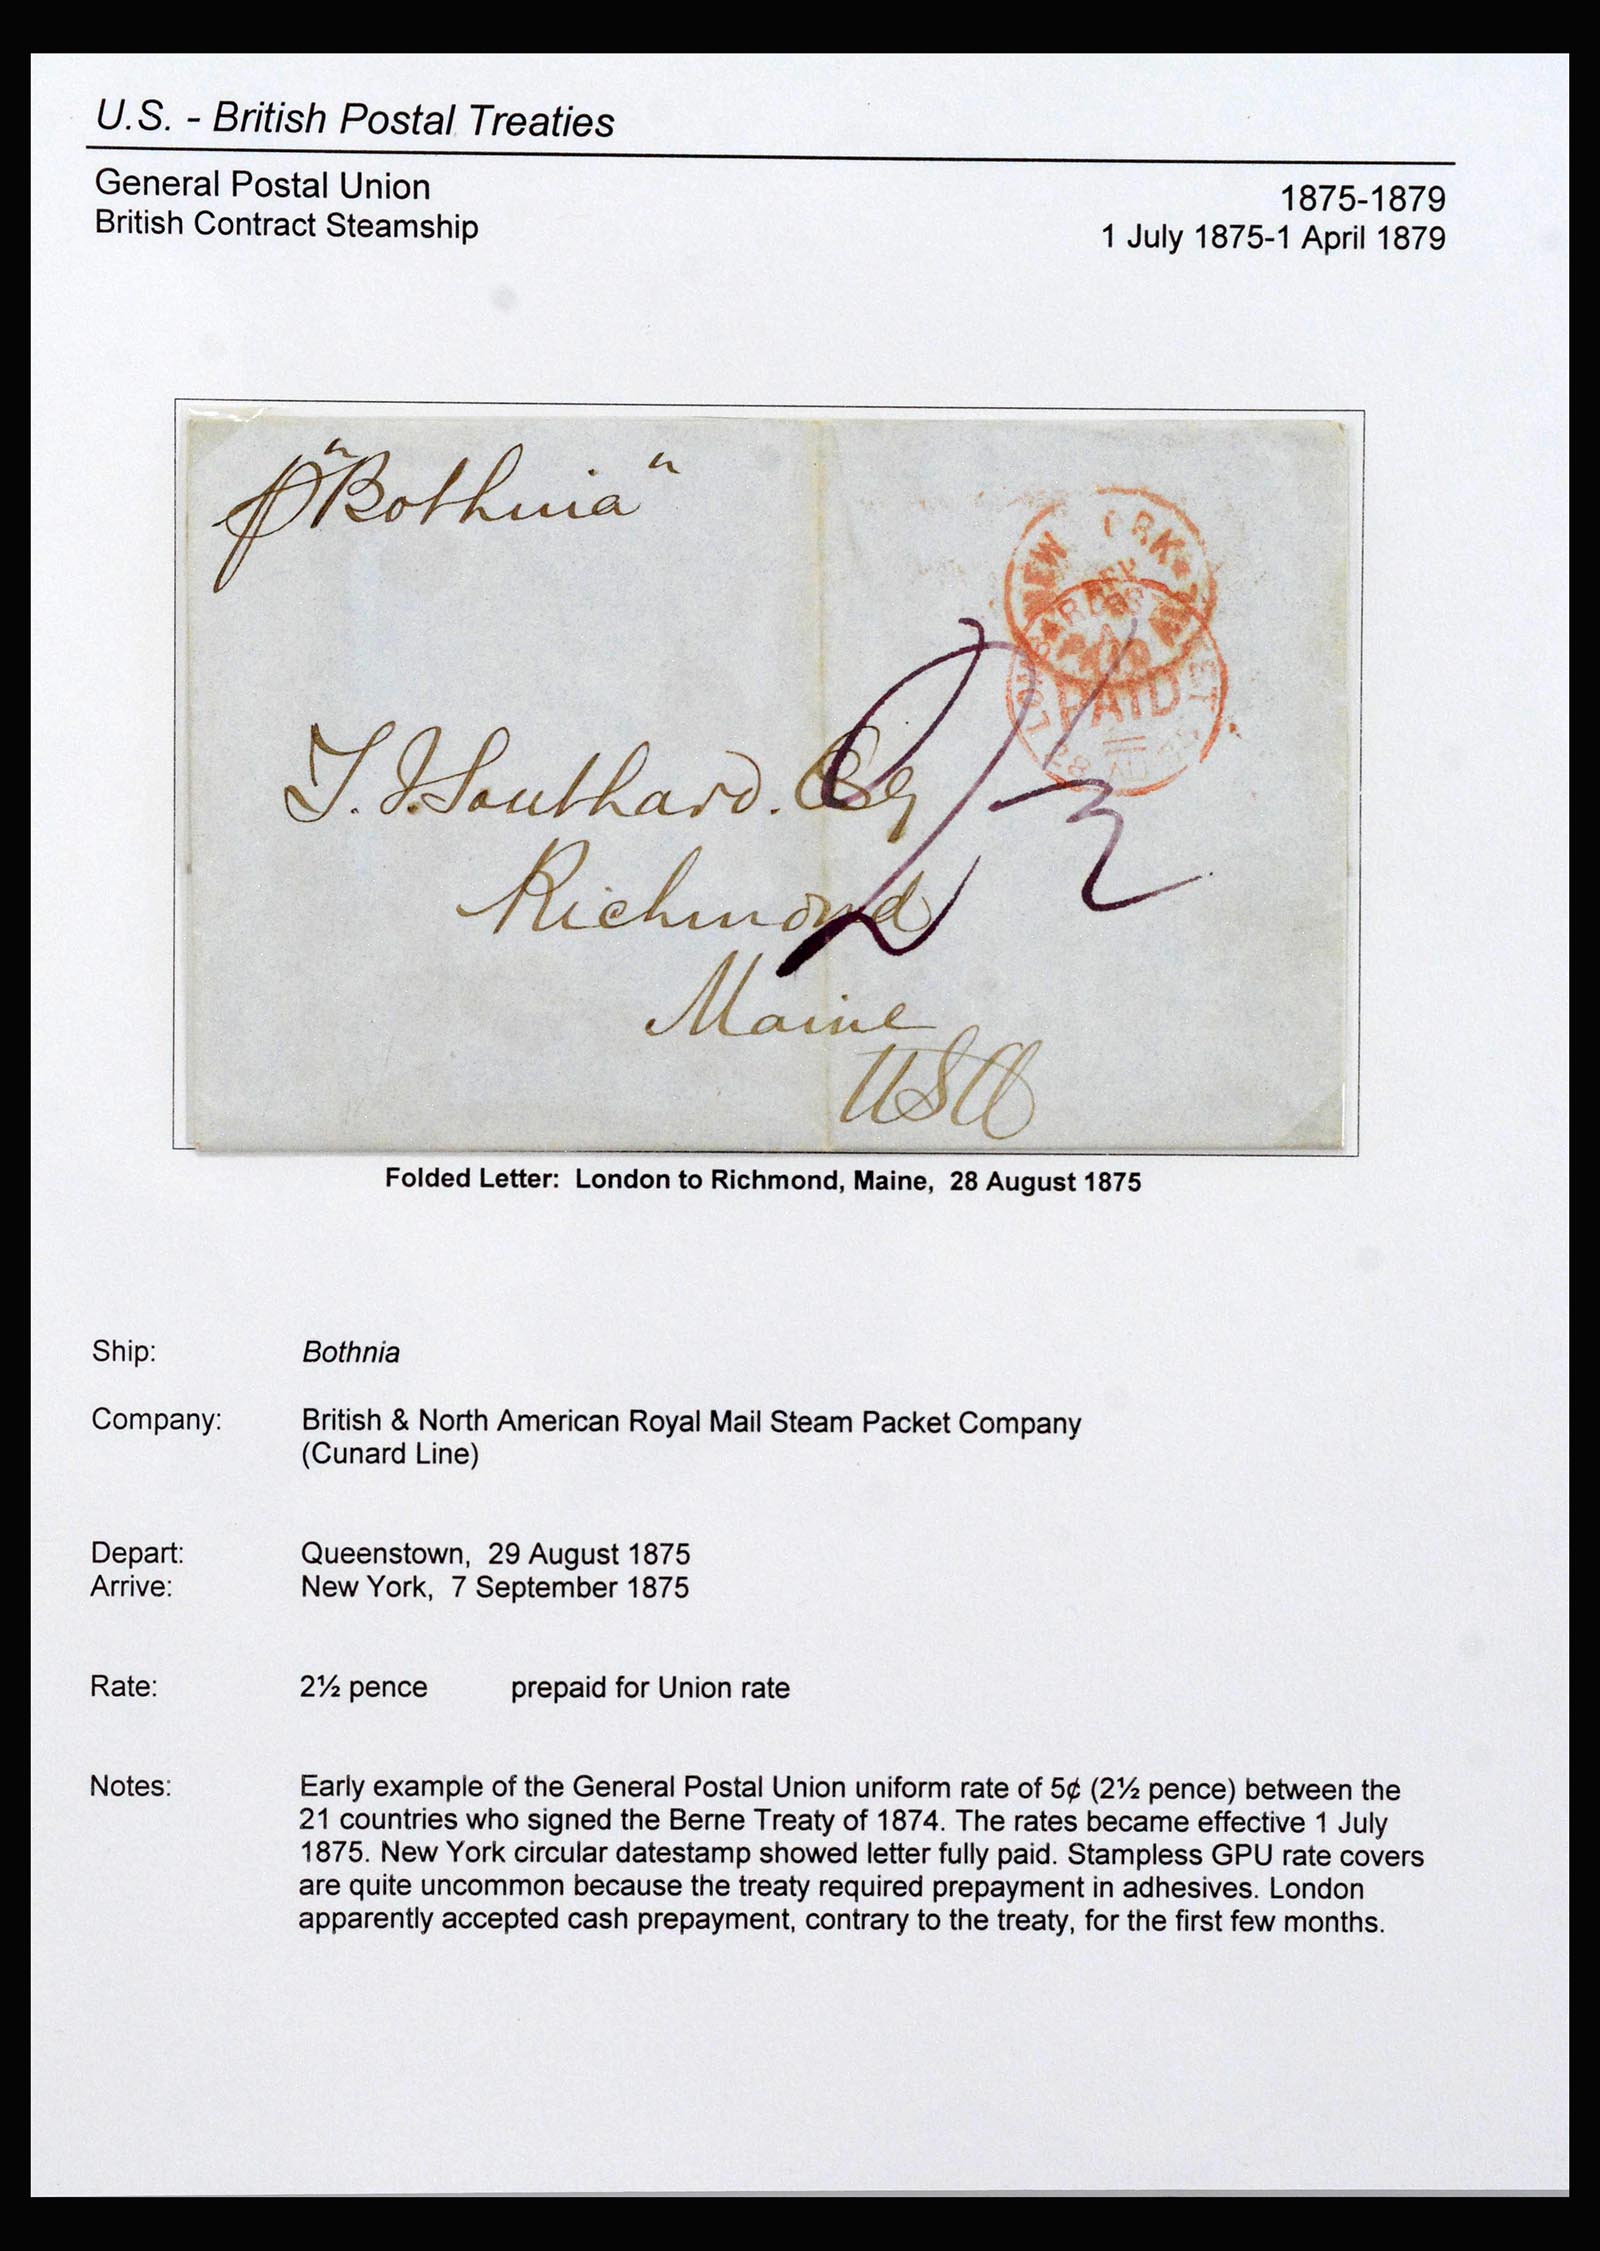 U.S. - British Postal Treaties
General Postal Union
1875-1879
British Contract Steamship
1 July 1875-1 April 1879
p "Bothnia"
NEW YORK
PAID
LOMBARD STREET
PAID
28 AU
2½
T. J. Southard. Esq
Richmond
Maine
USA
Folded Letter: London to Richmond, Maine, 28 August 1875
Ship: Bothnia
Company: British & North American Royal Mail Steam Packet Company
(Cunard Line)
Depart: Queenstown, 29 August 1875
Arrive: New York, 7 September 1875
Rate: 2½ pence prepaid for Union rate
Notes: Early example of the General Postal Union uniform rate of 5¢ (2½ pence) between the
21 countries who signed the Berne Treaty of 1874. The rates became effective 1 July
1875. New York circular datestamp showed letter fully paid. Stampless GPU rate covers
are quite uncommon because the treaty required prepayment in adhesives. London
apparently accepted cash prepayment, contrary to the treaty, for the first few months.